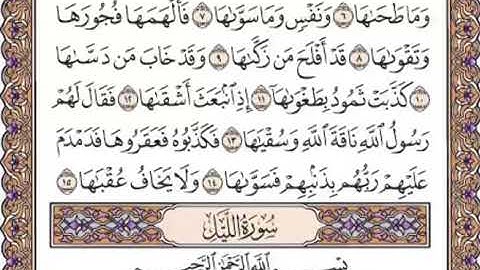 وَمَا طَحَىٰهَا ٦ وَنَفْسٍ وَمَا سَوَّىٰهَا ٧ فَأَلْهَمَهَا فُجُورَهَا
وَتَقْوَىٰهَا ٨ قَدْ أَفْلَحَ مَن زَكَّىٰهَا ٩ وَقَدْ خَابَ مَن دَسَّىٰهَا
١٠ كَذَّبَتْ ثَمُودُ بِطَغْوَىٰهَا ١١ إِذِ ٱنۢبَعَثَ أَشْقَىٰهَا ١٢ فَقَالَ لَهُمْ
رَسُولُ ٱللَّهِ نَاقَةَ ٱللَّهِ وَسُقْيَٰهَا ١٣ فَكَذَّبُوهُ فَعَقَرُوهَا فَدَمْدَمَ
عَلَيْهِمْ رَبُّهُم بِذَنۢبِهِمْ فَسَوَّىٰهَا ١٤ وَلَا يَخَافُ عُقْبَٰهَا ١٥
سُورَةُ اللَّيْلِ
بِسْمِ ٱللَّهِ ٱلرَّحْمَٰنِ ٱلرَّحِيمِ